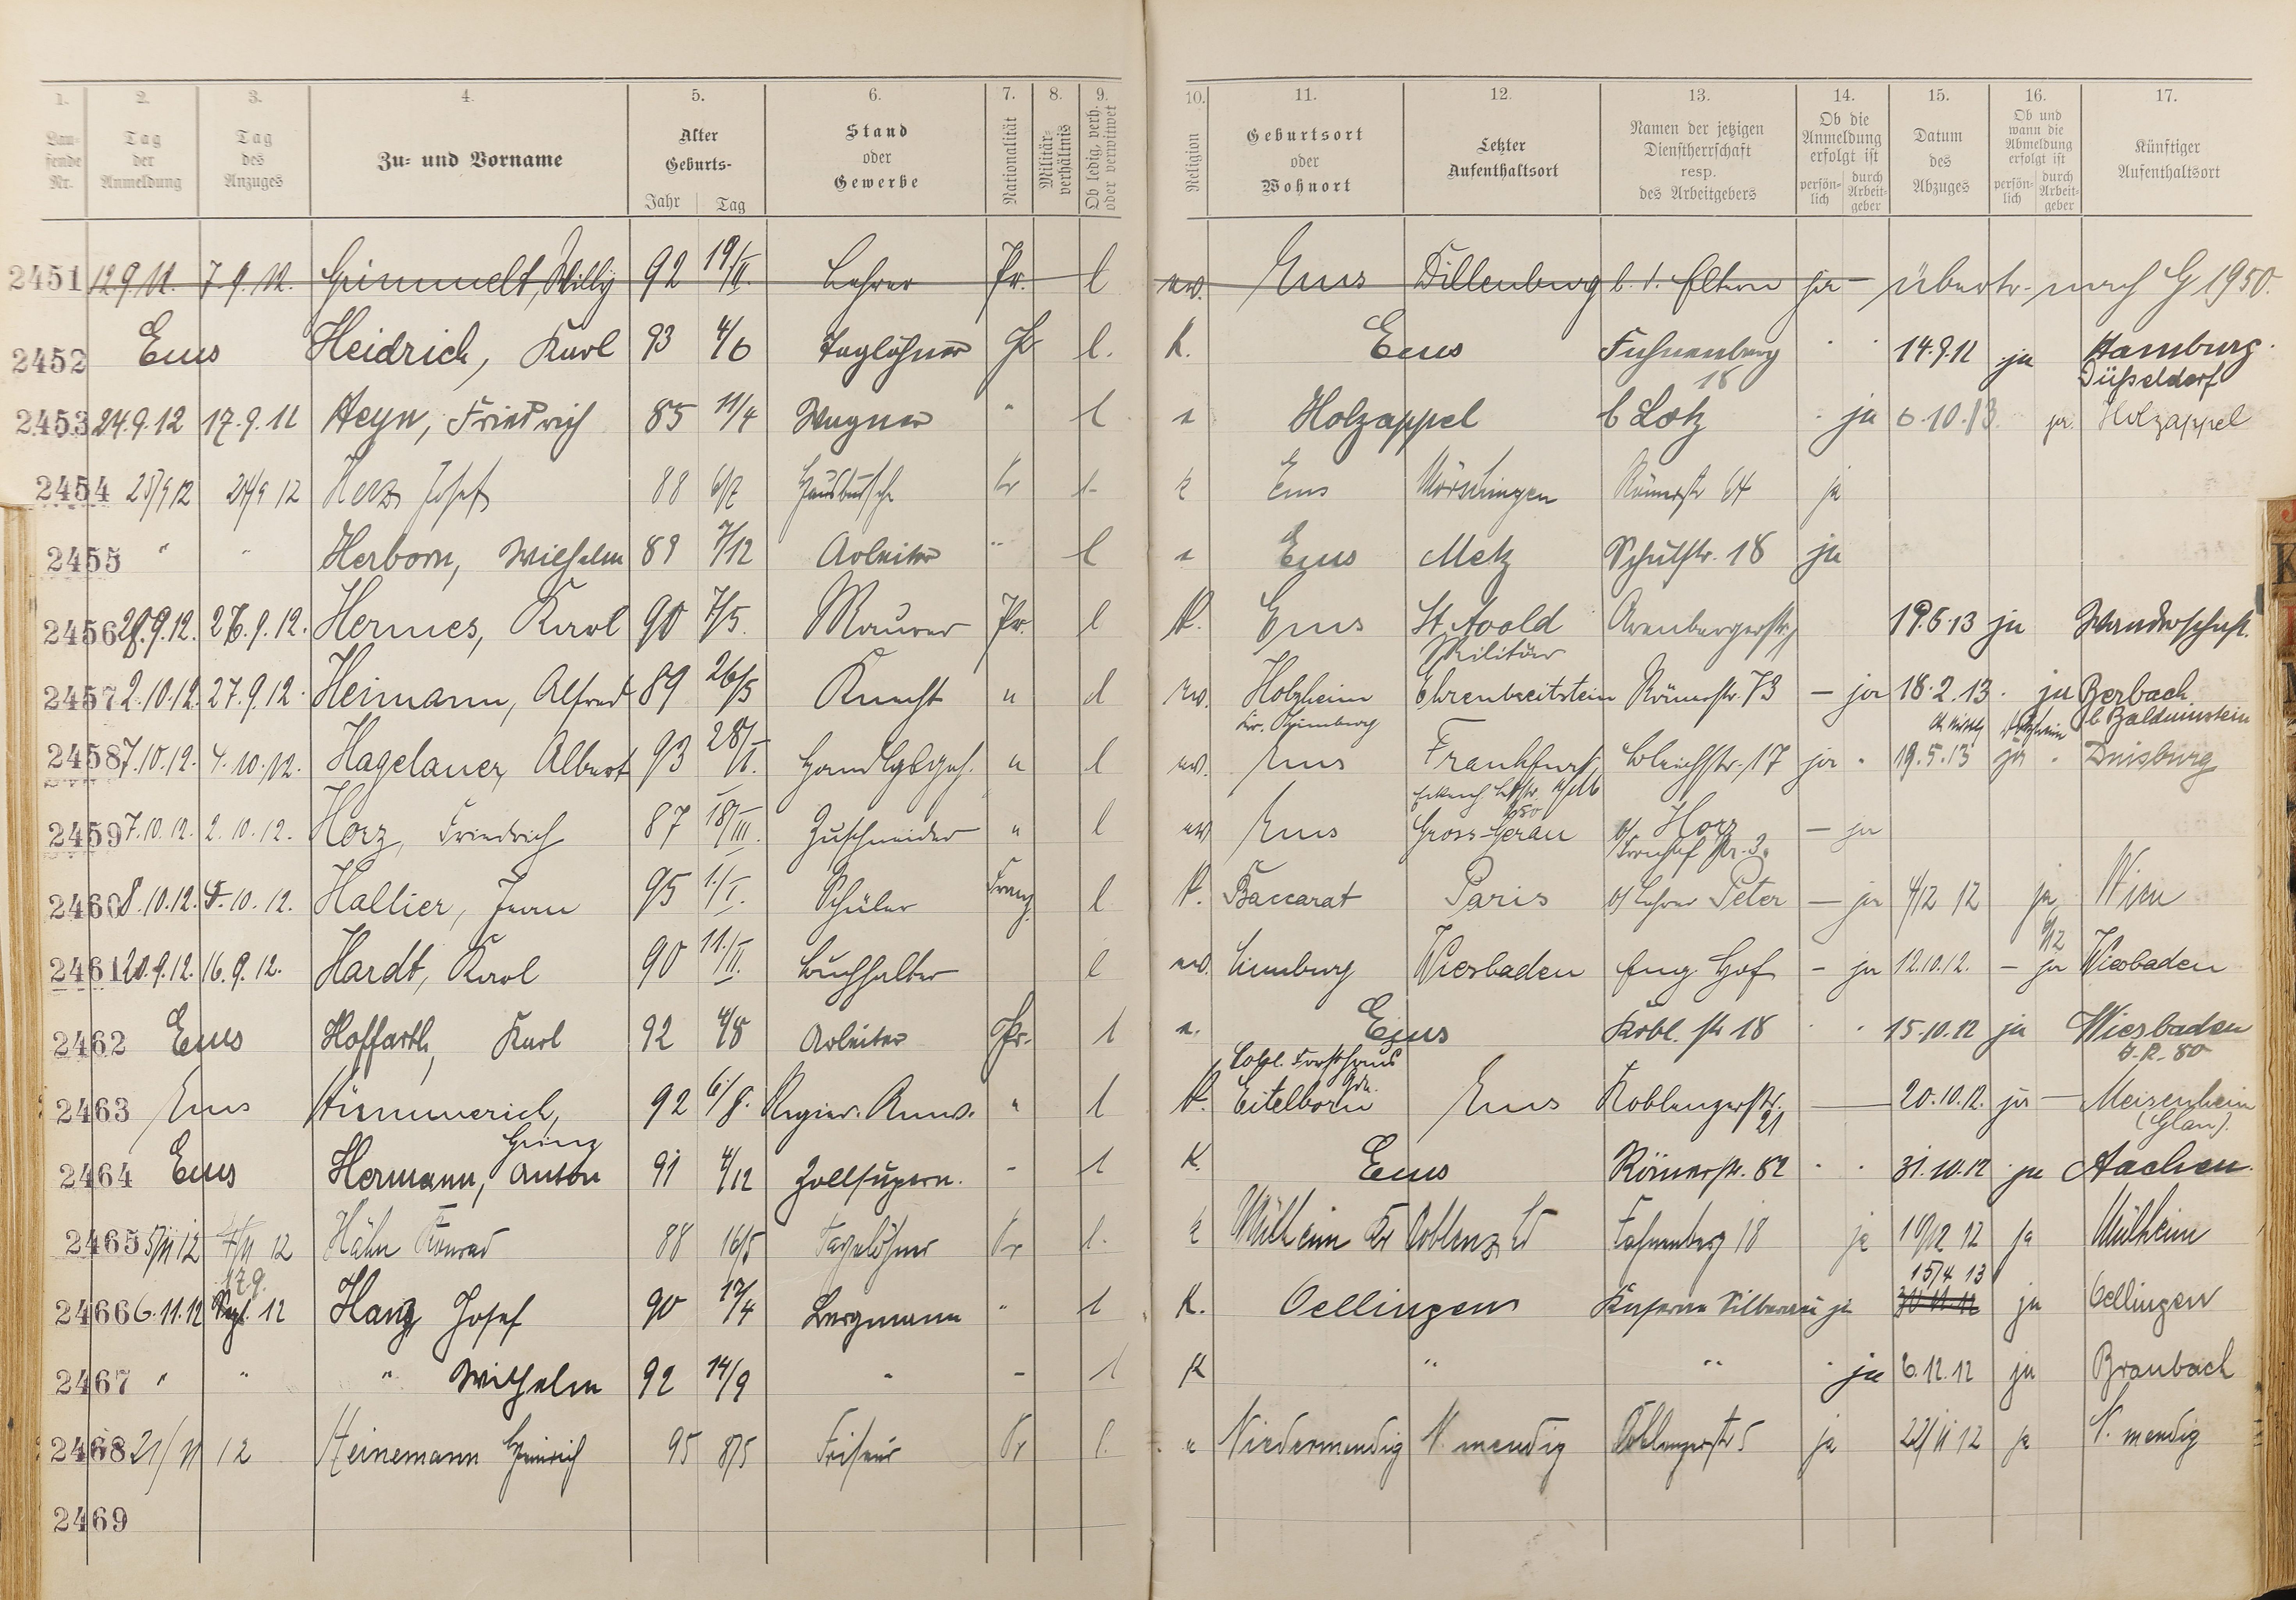 1. 2. 3. 4. 5. 6. 7. 8. 9. 10. 11. 12. 13. 14. 15. 16. 17.
Lau-fende Nr. Tag der Anmeldung Tag des Anzuges Zu- und Vorname Alter Geburts- Jahr Tag Stand oder Gewerbe Nationalität Militär-verhältnis Ob ledig, verh. oder verwitwet Religion Geburtsort oder Wohnort Letzter Aufenthaltsort Namen der jetzigen Dienstherrschaft resp. des Arbeitgebers Ob die Anmeldung erfolgt ist persön-lich durch Arbeit-geber Datum des Abzuges Ob und wann die Abmeldung erfolgt ist persön-lich durch Arbeit-geber Künftiger Aufenthaltsort
2451 12.9.12. 7.9.12. Grimmelt, Willy 92 19/II. Lehrer Pr. l ev. Ems Dillenburg b. d. Eltern ja – übertr. nach G 1950.
2452 Ems Heidrich, Karl 93 4/6 Taglöhner Pr l. K. Ems 14.9.12 ja Hamburg.
18 Düßeldorf
2453 24.9.12 17.9.12 Heyn, Friedrich 85 11/4 Wagner " l Holzappel b Lotz ja 6.10.13 ja. Holzappel
2454 25/9 12 24/9 12 Herz Josef 88 6/7 Hausbursche Pr l. k Ems Mörchingen Römerstr 64 ja
2455 " " Herborn, Wilhelm 89 7/12 Arbeiter " l Ems Metz Schulstr. 18 ja
2456 28.9.12. 26.9.12. Hermes, Karl 90 7/5. Maurer Pr. l K. Ems St. Avold Arenbergerstr. 19.6.13 ja Wanderschaft.
Militär
2457 2.10.12. 27.9.12. Heimann, Alfred 89 26/5 Knecht " l ev. Holzheim Ehrenbreitstein Römerstr. 73 – ja 18.2.13. ja Berbach
Kr. Limburg b Balduinstein
2458 7.10.12. 4.10.12. Hagelauer, Albert 93 28/VI. Handlgsgeh. " l ev. Ems Frankfurt, Bleichstr. 17 ja " 19.5.13 ja " Duisburg
2459 7.10.12. 2.10.12. Horz, Friedrich 87 18/III. Zuschneider " l ev. Ems Gross-Gerau b/ Horz – ja
2460 8.10.12. 5.10.12. Hallier, Jean 95 1./I. Schüler Franz. l K. Baccarat Paris b/ Lehrer Peter – ja 4/12 12 ja Wien
2461 20.9.12. 16.9.12. Hardt, Karl 90 11./II. Buchhalter l ev. Limburg Wiesbaden Eng. Hof – ja 12.10.12. – ja Wiesbaden
2462 Ems Hoffarth, Karl 92 4/8 Arbeiter Pr. l Ems Kobl. str 18 15.10.12 ja Wiesbaden
I.R. 80
Forsthaus
2463 Ems Hümmerich, 92 6/8. Regier. Anw. " l K. Eitelborn Ems Koblenzerstr. 21 — 20.10.12. ja — Meisenheim
Heinz (Glan).
2464 Ems Hermann, Anton 91 4/12 Zollsupern. – l K. Ems Römerstr. 62 31.10.12 ja Aachen.
2465 5/11 12 4/11 12 Hähn Konrad 88 16/5 Tagelöhner Pr l. k Mülheim Kr Coblenz Fahnenberg 18 ja 10/12 12 ja Mülheim
17.9. 15/4 13
2466 6.11.12 Sept. 12 Hanz Josef 90 12/4 Bergmann " l K. Oellingen Kaserne Silberau ja 30.11.12 ja Oellingen
2467 " " " Wilhelm 92 14/9 " – l K " " ja 6.12.12 ja Braubach
2468 21/11 12 Heinemann Heinrich 95 8/5 Friseur Pr l. Niedermendig N. mendig Coblenzerstr 5 ja 22/11 12 ja N. mendig
2469